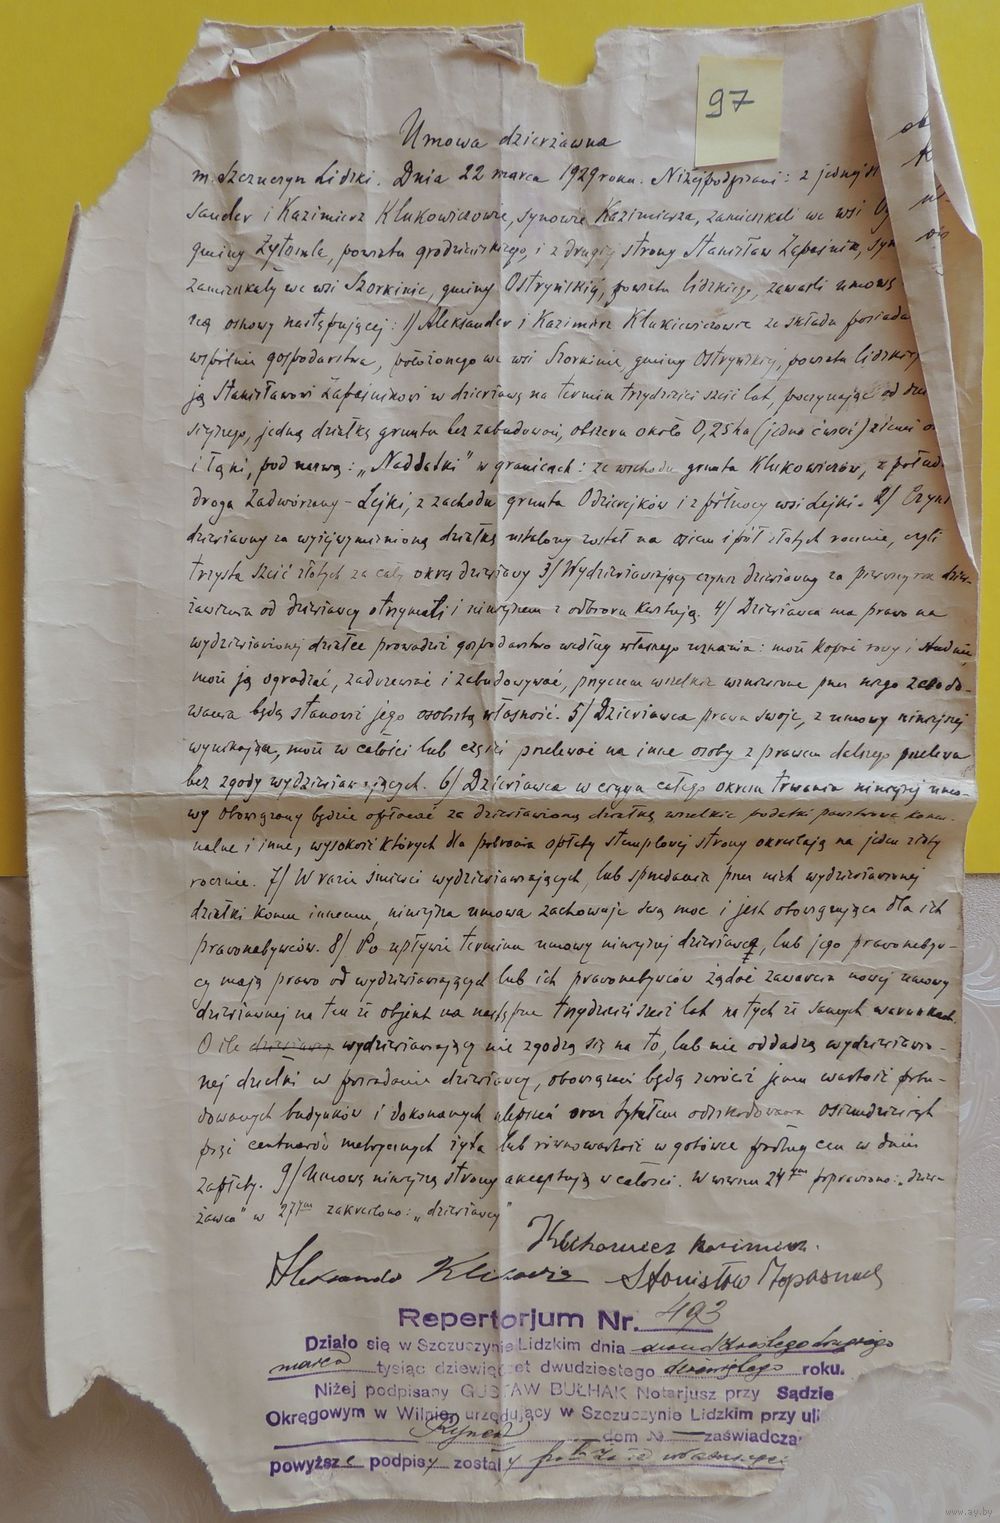 97
Umowa dzierżawna
m. Szczuczyn Lidzki. Dnia 22 marca 1929 roku. Niżej podpisani: z jednej st
sander i Kazimierz Klukowiczowie, synowie Kazimierza, zamieszkali we wsi
gminy Żytomla, powiatu grodzieńskiego, i z drugiej strony Stanisław Zapaśnik, syn
zamieszkały we wsi Szorkinie, gminy Ostryńskiej, powiatu lidzkiego, zawarli umowę
tej osnowy następującej: 1/ Aleksander i Kazimierz Klukiewiczowie ze składu posiada
wspólnie gospodarstwa, położonego we wsi Szorkinie, gminy Ostryńskiej, powiatu lidzkiego
ją Stanisławowi Zapaśnikowi w dzierżawę na termin trzydzieści sześć lat, poczynając od dni
siejszego, jedną działkę gruntu bez zabudowań, obszaru około 0,25 ha (jedna ćwierć) ziemi o
i łąki, pod nazwą: „Naddatki" w granicach: ze wschodu grunta Klukowiczów, z połud
droga Zadwórzany - Lejki, z zachodu grunta Odziejków i z północy wsi Lejki. 2/ Czynsz
dzierżawny za wyżejwymienioną działkę ustalony został na osiem i pół złotych rocznie, czyli
trzysta sześć złotych za cały okres dzierżawy 3/ Wydzierżawiający czynsz dzierżawny za pierwszy rok dzier-
żawienia od dzierżawcy otrzymali i niniejszem z odbioru kwitują. 4/ Dzierżawca ma prawo na
wydzierżawionej działce prowadzić gospodarstwo według własnego uznania: może kopać rowy i studnie,
może ją ogrodzić, zadrzewiać i zabudowywać, przyczem wszelkie wzniesione przez niego zabudo-
wania będą stanowić jego osobistą własność. 5/ Dzierżawca prawa swoje, z umowy niniejszej
wynikające, może w całości lub części przelewać na inne osoby z prawem dalszego przelewu
bez zgody wydzierżawiających. 6/ Dzierżawca w ciągu całego okresu trwania niniejszej umo-
wy obowiązany będzie opłacać za dzierżawioną działkę wszelkie podatki państwowe komu-
nalne i inne, wysokość których dla pobrania opłaty stemplowej strony określają na jeden złoty
rocznie. 7/ W razie śmierci wydzierżawiających, lub sprzedania przez nich wydzierżawionej
działki komu innemu, niniejsza umowa zachowuje swą moc i jest obowiązująca dla ich
prawonabywców. 8/ Po upływie terminu umowy niniejszej dzierżawca, lub jego prawonabyw-
cy mają prawo od wydzierżawiających lub ich prawonabywców żądać zawarcia nowej umowy
dzierżawnej na ten że objekt na następne trzydzieści sześć lat na tych że samych warunkach.
O ile dzierżawcy wydzierżawiający nie zgodzą się na to, lub nie oddadzą wydzierżawio-
nej działki w posiadanie dzierżawcy, obowiązani będą zwrócić jemu wartość pobu-
dowanych budynków i dokonanych ulepszeń oraz tytułem odszkodowania osiemdziesiąt
pięć centnarów metrycznych żyta lub równowartość w gotówce podług cen w dniu
zapłaty. 9/ Umowę niniejszą strony akceptują w całości. W wierszu 24ym poprawiono: „dzier-
żawca" w 27ym zakreślono: „dzierżawcy"
Klukowicz Kazimierz.
Aleksander Klukowicz Stanisław Zapaśnik
Repertorjum Nr. 493
Działo się w Szczuczynie Lidzkim dnia dwudziestego drugiego
marca tysiąc dziewięćset dwudziestego dziewiątego roku.
Niżej podpisany GUSTAW BUŁHAK Notarjusz przy Sądzie
Okręgowym w Wilnie, urzędujący w Szczuczynie Lidzkim przy uli
Rynek dom № — zaświadcza
powyższe podpisy zostały
www.ay.by